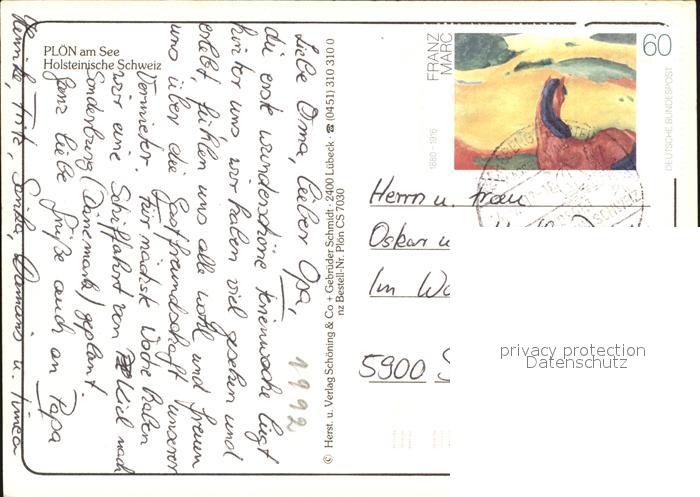 PLÖN am See
Holsteinische Schweiz
Liebe Oma, lieber Opa,
die erste wunderschöne Ferienwoche liegt
hinter uns. Wir haben viel gesehen und
erlebt, fühlen uns alle wohl und freuen
uns über die Gastfreundschaft unserer
Vermieter. Für nächste Woche haben
wir eine Schiffahrt von Kiel nach
Sonderburg (Dänemark) geplant.
Ganz liebe Grüße auch an Papa
Fritz, Sandra, u.
1992
© Herst. u. Verlag Schöning & Co + Gebrüder Schmidt · 2400 Lübeck · ☎ (0451) 310 310 0
nz Bestell-Nr. Plön CS 7030
FRANZ
MARC
1880 - 1916
60
DEUTSCHE BUNDESPOST
Herrn u. Frau
Oskar u
Im
5900
privacy protection
Datenschutz